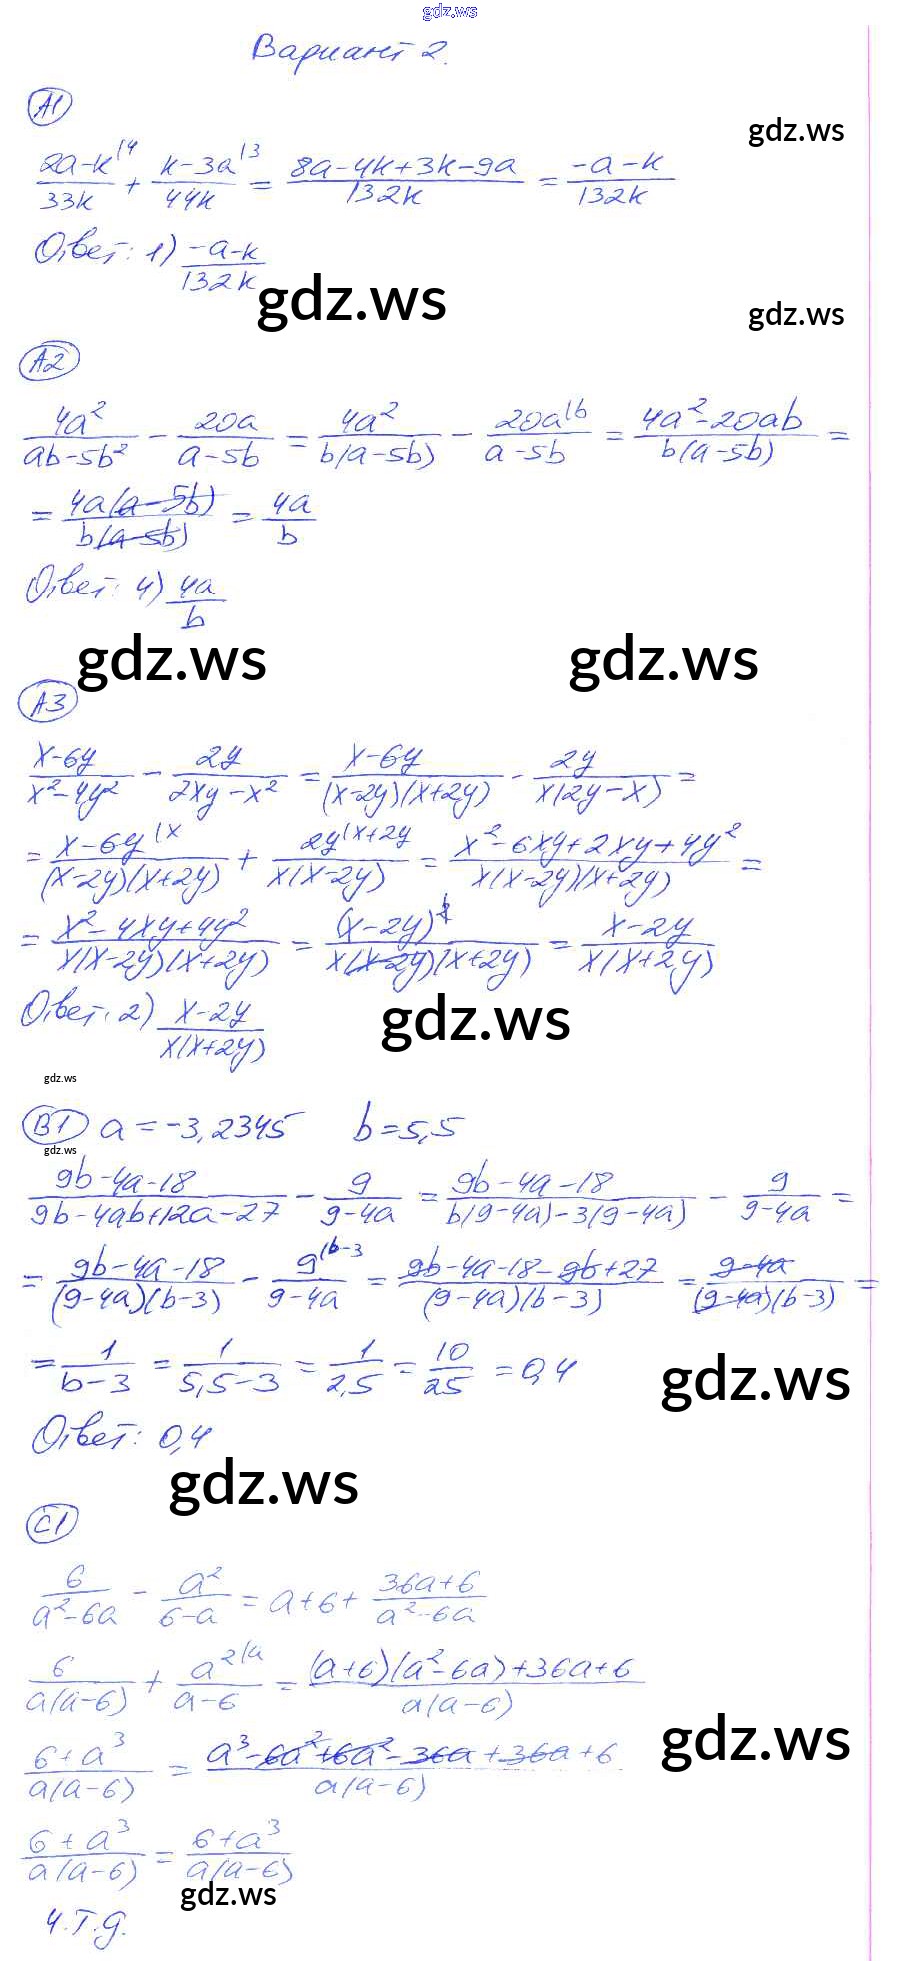 gdz.ws
Вариант 2.
А1
(2a-k)/(33k) |4 + (k-3a)/(44k) |3 = (8a-4k+3k-9a)/(132k) = (-a-k)/(132k)
gdz.ws
Ответ: 1) (-a-k)/(132k)
gdz.ws
gdz.ws
А2
4a²/(ab-5b²) - 20a/(a-5b) = 4a²/(b(a-5b)) - 20a|b/(a-5b) = (4a²-20ab)/(b(a-5b)) =
= 4a(a-5b)/(b(a-5b)) = 4a/b
Ответ: 4) 4a/b
gdz.ws gdz.ws
А3
(x-6y)/(x²-4y²) - 2y/(2xy-x²) = (x-6y)/((x-2y)(x+2y)) - 2y/(x(2y-x)) =
= (x-6y |x)/((x-2y)(x+2y)) + (2y |x+2y)/(x(x-2y)) = (x²-6xy+2xy+4y²)/(x(x-2y)(x+2y)) =
= (x²-4xy+4y²)/(x(x-2y)(x+2y)) = (x-2y)²/(x(x-2y)(x+2y)) = (x-2y)/(x(x+2y))
Ответ: 2) (x-2y)/(x(x+2y))
gdz.ws
gdz.ws
В1 a = -3,2345 b = 5,5
gdz.ws
(9b-4a-18)/(9b-4ab+12a-27) - 9/(9-4a) = (9b-4a-18)/(b(9-4a)-3(9-4a)) - 9/(9-4a) =
= (9b-4a-18)/((9-4a)(b-3)) - 9|b-3/(9-4a) = (9b-4a-18-9b+27)/((9-4a)(b-3)) = (9-4a)/((9-4a)(b-3)) =
= 1/(b-3) = 1/(5,5-3) = 1/2,5 = 10/25 = 0,4
gdz.ws
Ответ: 0,4
gdz.ws
С1
6/(a²-6a) - a²/(6-a) = a+6+ (36a+6)/(a²-6a)
6/(a(a-6)) + a²|a/(a-6) = ((a+6)(a²-6a)+36a+6)/(a(a-6))
gdz.ws
(6+a³)/(a(a-6)) = (a³-6a²+6a²-36a+36a+6)/(a(a-6))
(6+a³)/(a(a-6)) = (6+a³)/(a(a-6))
gdz.ws
ч.т.д.